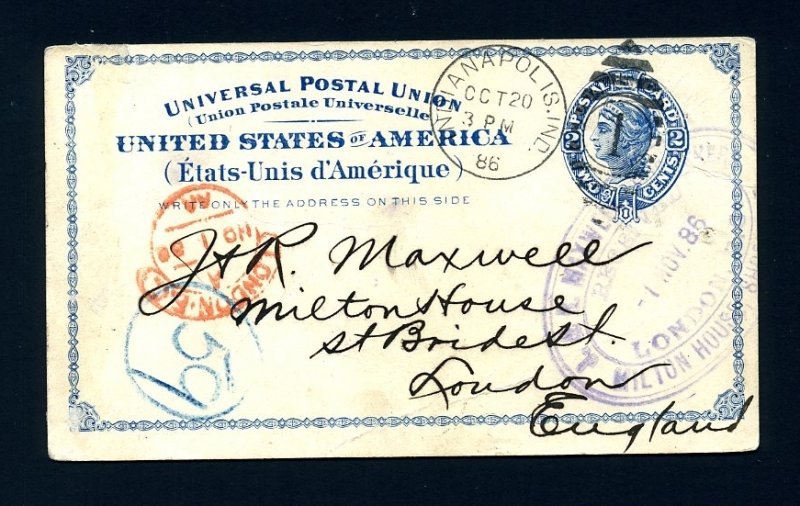 UNIVERSAL POSTAL UNION
(Union Postale Universelle)
UNITED STATES OF AMERICA
(États-Unis d'Amérique)
WRITE ONLY THE ADDRESS ON THIS SIDE
INDIANAPOLIS, IND.
OCT 20
3 PM
86
POSTAL CARD
2 2
TWO CENTS
1
J & R. Maxwell
Milton House
St Bride St.
London
England
LONDON
59
1 NOV. 86
LONDON
MILTON HOUSE